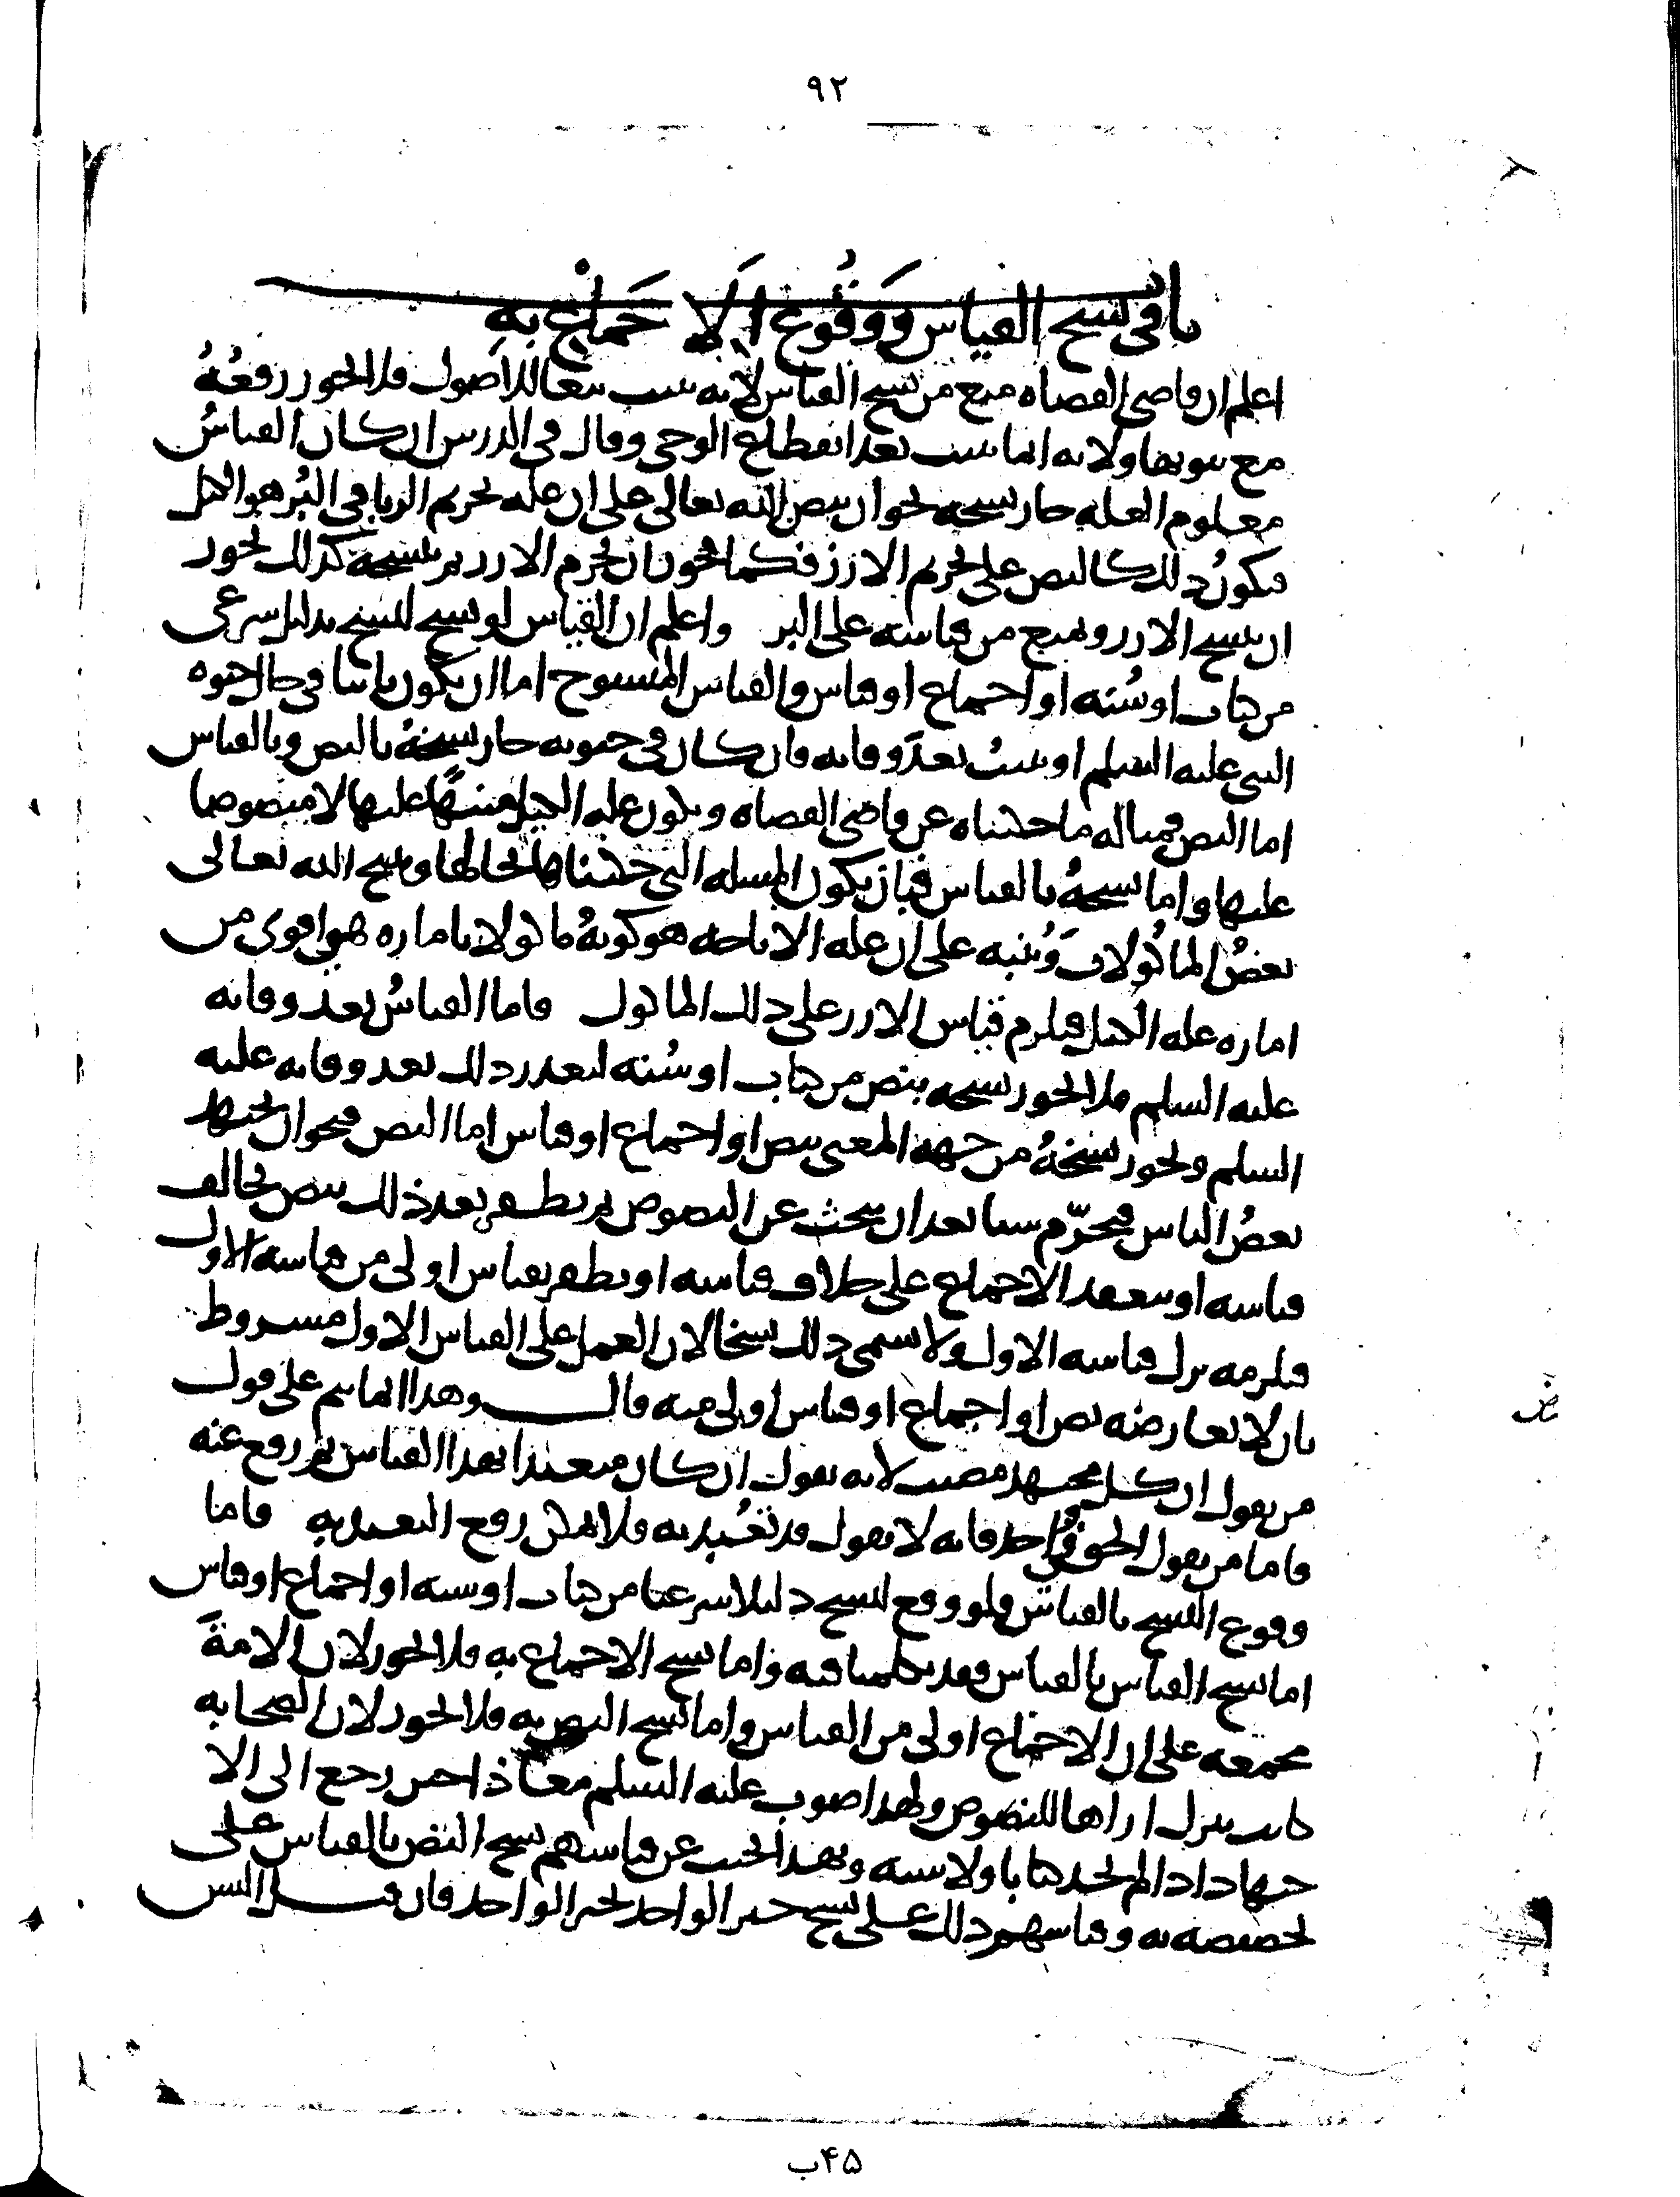 ٩٢
باب في نسخ القياس ووقوع الاجماع به
اعلم ان قاضي القضاه منع من نسخ القياس لانه يثبت تبعا للاصول فلا يجوز رفعُهُ
مع ثبوتها ولانه انما يثبت بعد انقطاع الوحي وقال في الدرس ان كان القياسُ
معلوم العله جاز نسخه نحو ان ينص الله تعالى على ان عله تحريم الربا في البُر هو الكيل
فيكونُ ذلك كالنص على تحريم الارز فكما يجوز ان يحرم الارز ثم ينسخه كذلك يجوز
ان ينسخ الارز ويمنع من قياسه على البر واعلم ان القياس لو نسخ لنسخ بدليل شرعي
من كتاب او سُنه او اجماع او قياس والقياس المنسوخ اما ان يكون ثابتا في حال حيوه
النبي عليه السلم او يثبتُ بعدَ وفاته فان كان في حيوته جاز نسخهُ بالنص وبالقياس
اما النص فمثاله ما حكيناه عن قاضي القضاه ويكون عله الكيل منبهًا عليها لا منصوصا
عليها واما نسخهُ بالقياس فبان يكون المسله التي حكيناها بحالها وينسخ الله تعالى
بعضُ الماكولات وَينبه على ان عله الاباحه هو كونهُ ماكولا باماره هي اقوى من
اماره عله الكيل فيلزم قياس الارز على ذلك الماكول فاما القياسُ بعد وفاته
عليه السلم فلا يجوز نسخه بنص من كتاب او سُنه لتعذر ذلك بعد وفاته عليه
السلم ويجوز نسخهُ من جهه المعنى بنص او اجماع او قياس اما النص فنحو ان يجتهد
بعضُ الناس فيحرّم شيا بعد ان يبحث عن النصوص ثم يظفر بعد ذلك بنص يخالف
قياسه او ينعقد الاجماع على خلاف قياسه او يظفر بقياس اولى من قياسه الاول
فيلزمه ترك قياسه الاول ولا يسمى ذلك نسخا لان العمل على القياس الاول مشروط
بان لا يعارضه نص او اجماع او قياس اولى منه قال وهذا انما يتم على قول
من يقول ان كل مجتهد مصيب لانه يقول ان كان متعبدا بهذا القياس ثم رفع عنه
فاما من يقول الحق في واحد فانه لا يقول قد تعُبد به فلا يمكن رفع التعبد به فاما
وقوع النسخ بالقياس فلو وقع لنسخ دليلا شرعيا من كتاب او سنه او اجماع او قياس
اما نسخ القياس بالقياس فقد تكلمنا فيه واما نسخ الاجماع به فلا يجوز لان الامةَ
مجمعه على ان الاجماع اولى من القياس واما نسخ النص به فلا يجوز لان الصحابه
كانت تترك اراها للنصوص ولهذا صوب عليه السلم معاذا حين رجع الى الا
جتهاد اذا لم يجد كتابا ولا سنه وبهذا نجيب عن قياسهم نسخ النص بالقياس على
تخصيصه به وقياسهم ذلك على نسخ خبر الواحد بخبر الواحد فان قيل اليس
۴۵ب